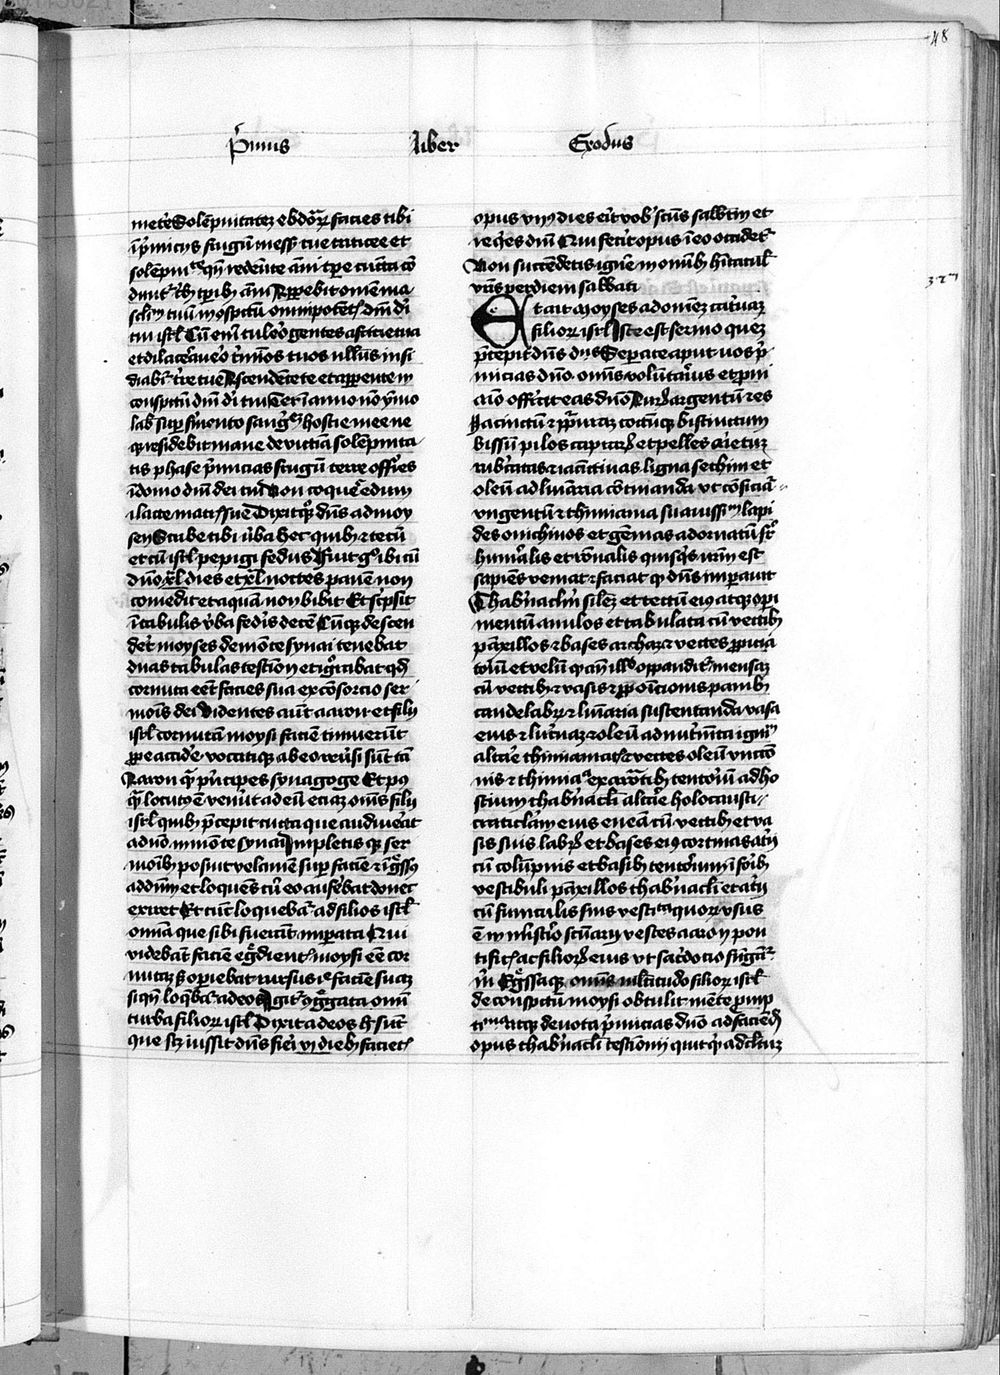 48
Primus liber Exodus
metere Solempnitatem ebdomadarum facies tibi
in primiciis frugum messis tue triticee et
solempnitatem quando redeunte anni tempore cuncta con
duntur tribus temporibus anni Apparebit omne ma
sculinum tuum in conspectu omnipotentis domini dei
tui israel Cum enim tulero gentes a facie tua
et dilatavero terminos tuos nullus insi
diabitur terre tue Ascendente te et apparente in
conspectu domini dei tui ter in anno non ymmo
labis super fermento sanguinem hostie mee ne
que residebit mane de victima solempnita
tis phase primicias frugum terre offeres
in domo domini dei tui Non coques edum
i lacte matris sue Dixitque dominus ad moy
sen Scribe tibi verba hec quibus et tecum
et cum israel pepigi fedus Fuit ergo ibi cum
domino xl dies et xl noctes panem non
comedit et aquam non bibit Et scripsit
in tabulis verba federis decem Cumque descen
deret moyses de monte synai tenebat
duas tabulas testimonii et ignorabat quod
cornuta esset facies sua ex consorcio ser
monis dei Videntes autem aaron et filii
israel cornutam moysi faciem timuerunt
prope accedere vocatique ab eo reversi sunt tam
Aaron quam principes synagoge Et postquam
locutus est venerunt ad eum eciam omnes filii
israel quibus precepit cuncta que audiverat
a domino in monte synai Impletisque ser
monibus posuit velamen super faciem et ingressus
ad dominum et loquens cum eo auferebat donec
exiret Et tunc loquebatur ad filios israel
omnia que sibi fuerant imperata Qui
videbant faciem egredientis moysi esse cor
nutam sed operiebat rursus ille faciem suam
siquando loquebatur ad eos Igitur congregata omni
turba filiorum israel Dixit ad eos hec sunt
que iussit dominus fieri vi diebus facietis
opus vii dies erit vobis sanctus sabbatum et
requies domini Qui fecerit opus in eo occidetur
Non succendetis ignem in omnibus habitaculis
vestris per diem sabbati
Et ait Moyses ad omnem catervam
filiorum israel Iste est sermo quem
precepit dominus Separate aput vos pri
micias domino omnis voluntarius et prono
animo offerat eas domino Aurum argentum et es
Jacinctum purpuram coccumque bis tinctum
bissum pilos caprarum et pelles arietum
rubricatas et iacinctinas ligna sethim et
oleum ad luminaria concinnanda ut conficiatur
ungentum et thimiama suavissimum lapi
des onichinos et gemmas ad ornatum super
humeralis et racionalis quisquis vestrum est
sapiens veniat et faciat quod dominus imperavit
Thabernaculum scilicet et tectum eius atque operi
mentum anulos et tabulata cum vectibus
paxillos et bases archam et vectes propicia
torium et velum quod ante illud oppanditur mensam
cum vectibus et vasis et propositionis panibus
candelabrum et luminaria sustentanda vasa
eius et lucernas et oleum ad nutrimenta ignium
altare thimiamatis et vectes oleum unctio
nis et thimiama ex aromatibus tentorium ad ho
stium thabernaculi altare holocausti
craticulam eius eneam cum vectibus et va
sis suis labrum et bases eius cortinas atrii
cum columpnis et basibus tentorium in foribus
vestibuli paxillos thabernaculi et atrii
cum funiculis suis vestimenta quorum usus
est in ministerio sanctuarii vestes aaron pon
tificis ac filiorum eius ut sacerdocio fungantur
michi Egressaque omnis multitudo filiorum israel
de conspectu moysi obtulit mente promp
tissima atque devota primicias domino ad faciendum
opus thabernaculi testimonii quicquid ad cultum